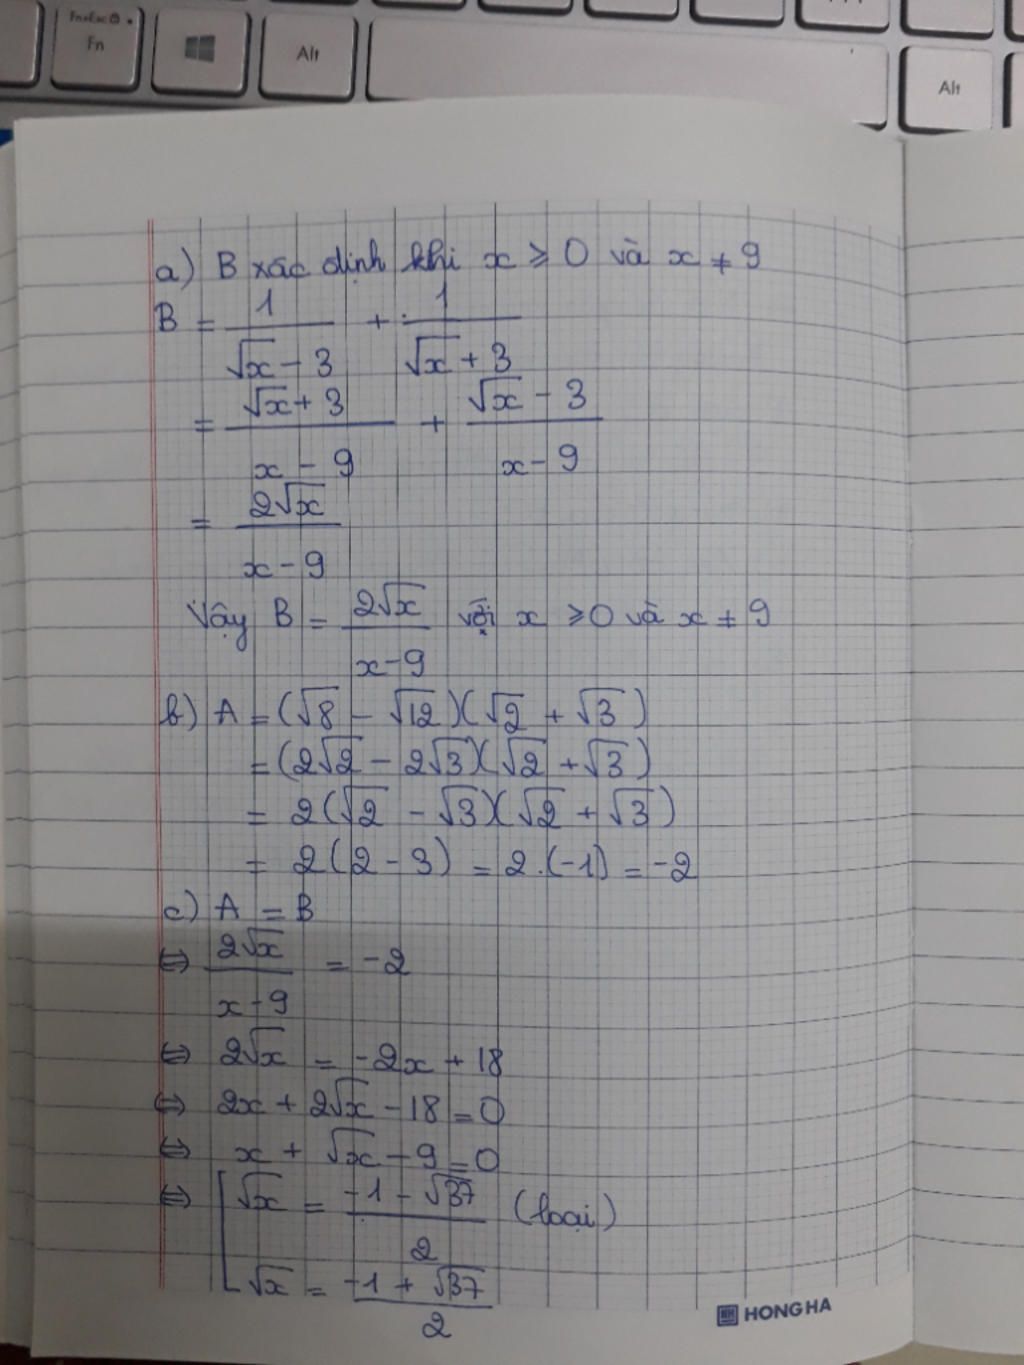 Fn+Esc
Fn
Alt
Alt
a) B xác định khi x ≥ 0 và x ≠ 9
B = 1/(√x - 3) + 1/(√x + 3)
= (√x + 3)/(x - 9) + (√x - 3)/(x - 9)
= 2√x/(x - 9)
Vậy B = 2√x/(x - 9) với x ≥ 0 và x ≠ 9
b) A = (√8 - √12)(√2 + √3)
= (2√2 - 2√3)(√2 + √3)
= 2(√2 - √3)(√2 + √3)
= 2(2 - 3) = 2.(-1) = -2
c) A = B
⇔ 2√x/(x - 9) = -2
⇔ 2√x = -2x + 18
⇔ 2x + 2√x - 18 = 0
⇔ x + √x - 9 = 0
⇔ [ √x = (-1 - √37)/2 (loại)
√x = (-1 + √37)/2
HH HONG HA